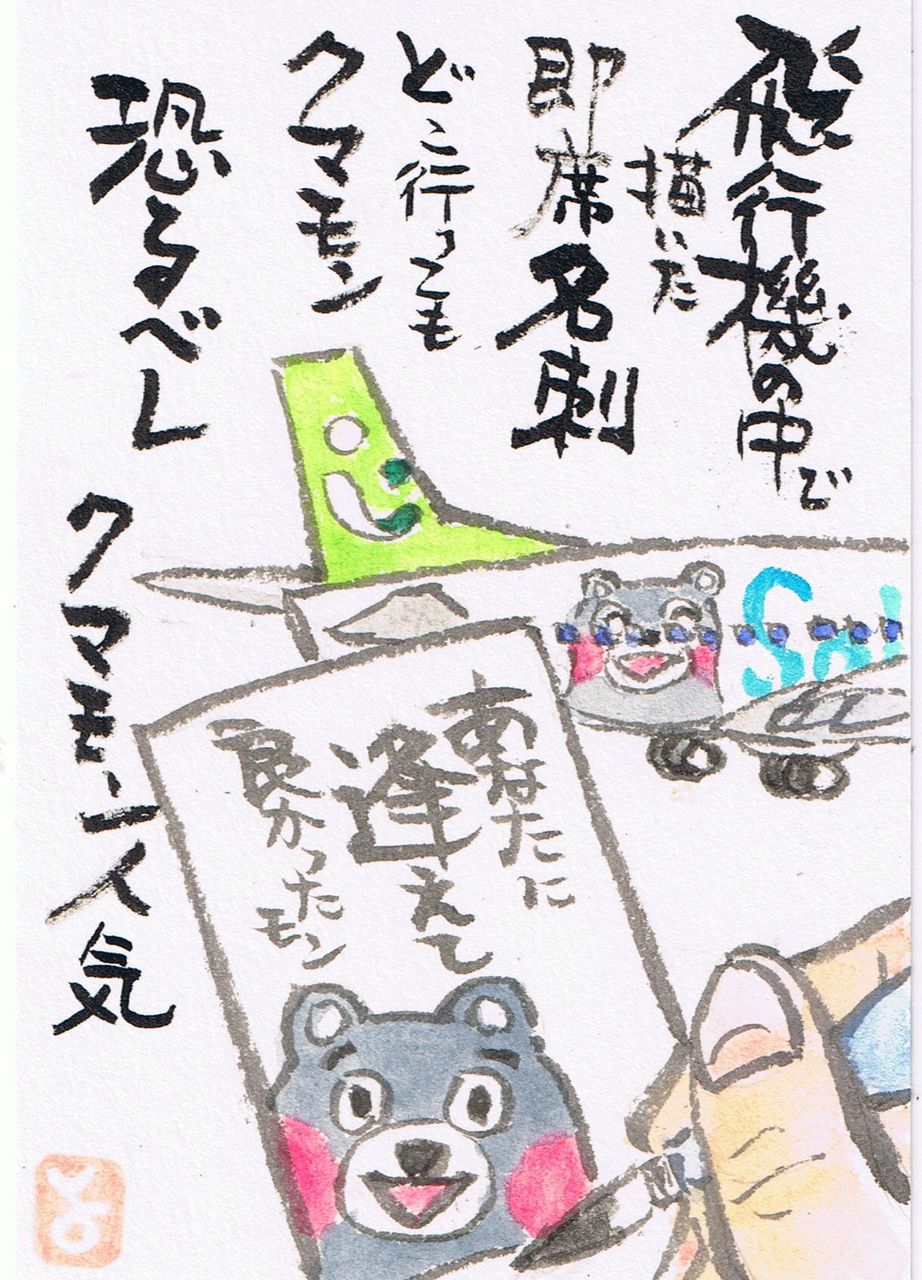 飛行機の中で
描いた
即席名刺
どこ行っても
クマモン
恐るべし
クマモン人気
Sol
あなたに
逢えて
良かったモン